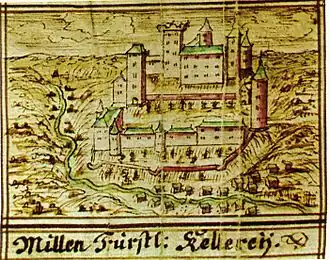 Millen Fürstl: Kellerey.